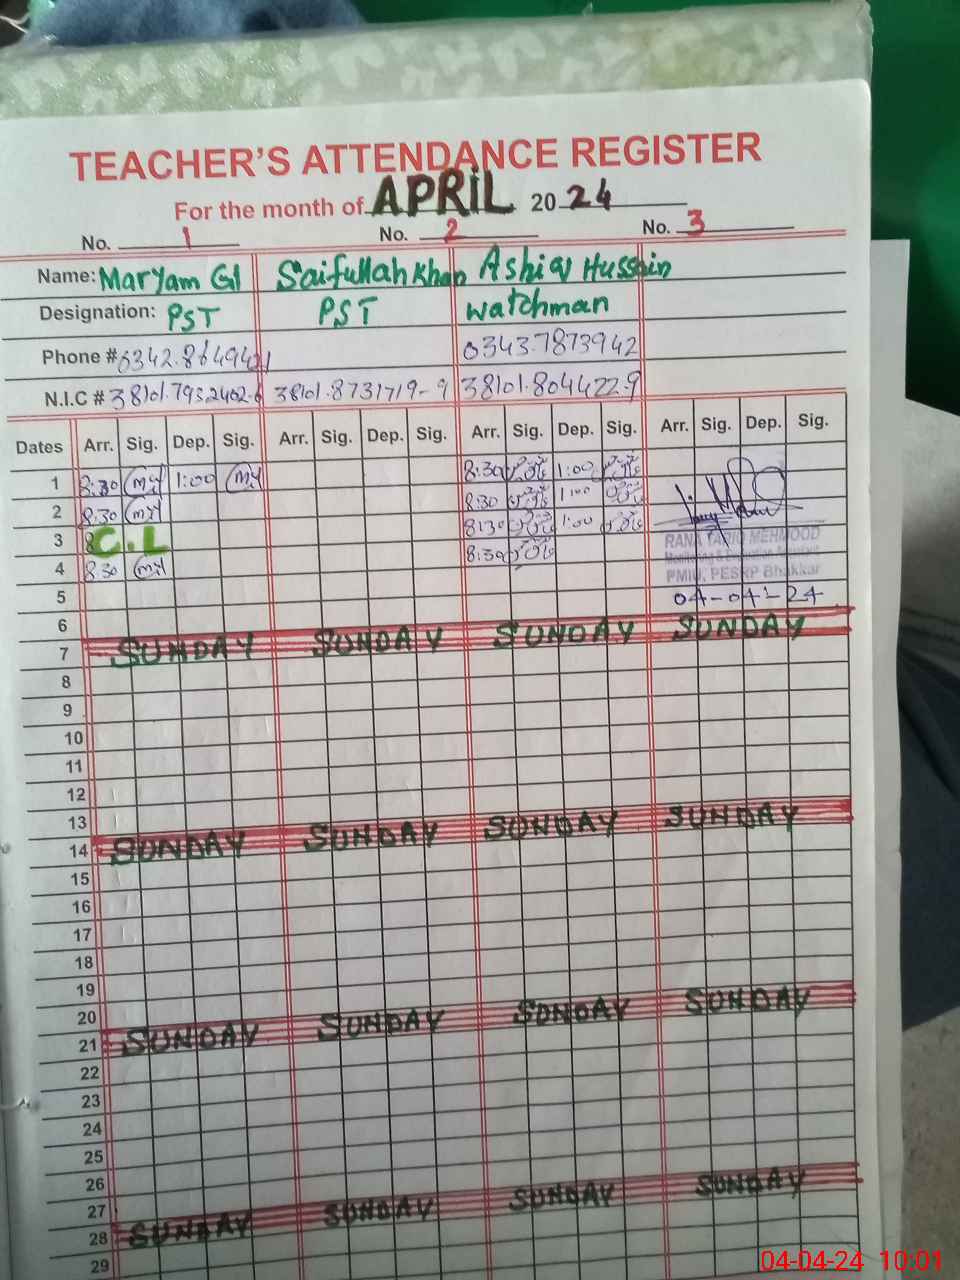 TEACHER'S ATTENDANCE REGISTER
For the month of APRIL 2024
No. 1 No. 2 No. 3
Name: Maryam Saifullah Khan Ashiq Hussain
Designation: PST PST Watchman
Phone # 0343.7873942
N.I.C # 38101.8731719-9 38101.804422.9
Dates Arr. Sig. Dep. Sig. Arr. Sig. Dep. Sig. Arr. Sig. Dep. Sig. Arr. Sig. Dep. Sig.
1 8:30 1:00 8:30 1:00
2 8:30 8:30 1:00
3 C.L 8:30 1:00
RANA TARIQ MEHMOOD
4 8:30 8:30
PMIU, PESRP Bhakkar
5 04-04-24
6
7 SUNDAY SUNDAY SUNDAY SUNDAY
8
9
10
11
12
13
14 SUNDAY SUNDAY SUNDAY SUNDAY
15
16
17
18
19
20
21 SUNDAY SUNDAY SUNDAY SUNDAY
22
23
24
25
26
27
28 SUNDAY SUNDAY SUNDAY SUNDAY
29
04-04-24 10:01